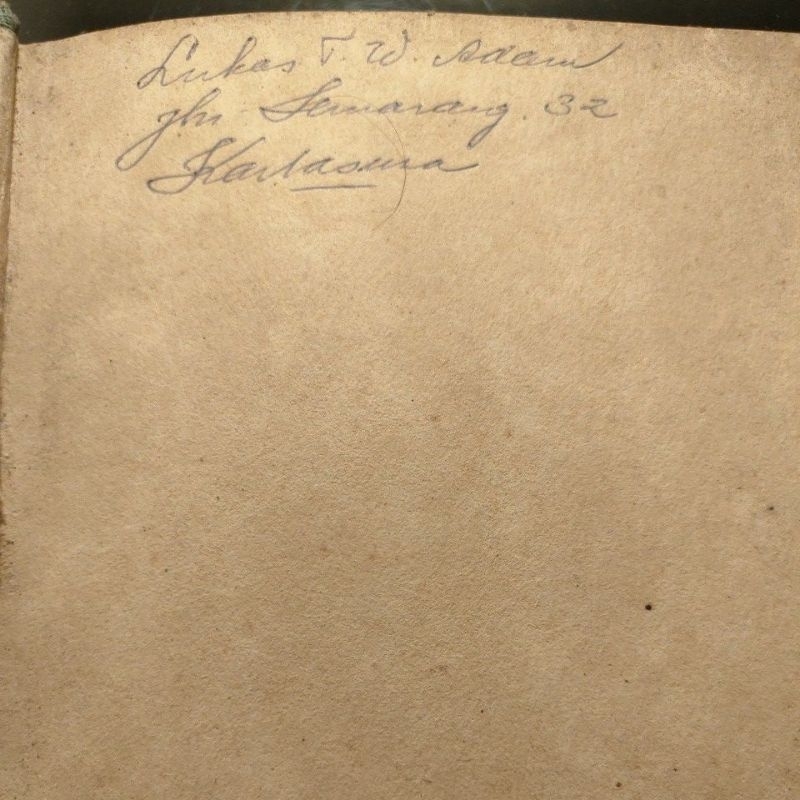 Lukas T. W. Adam
jln Semarang. 32
Kartasura